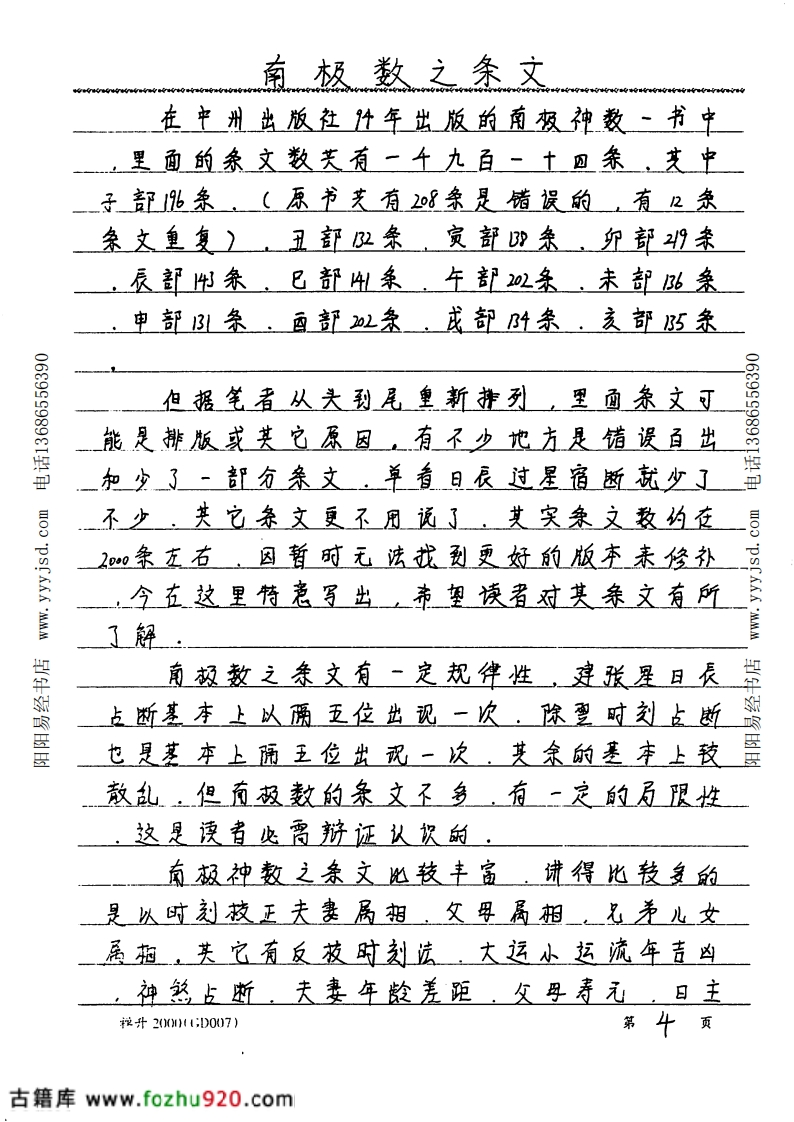 南极数之条文
在中州出版社94年出版的南极神数一书中
，里面的条文数共有一千九百一十四条．其中
子部196条．（原书共有208条是错误的，有12条
条文重复）．丑部132条．寅部138条．卯部219条
．辰部143条．巳部141条．午部202条．未部136条
．申部131条．酉部202条．戌部134条．亥部135条
．
但据笔者从头到尾重新排列，里面条文可
能是排版或其它原因。有不少地方是错误百出
和少了一部分条文．单看日辰过星宿断就少了
不少．其它条文更不用说了．其实条文数约在
2000条左右．因暂时无法找到更好的版本来修补
．今在这里特意写出，希望读者对其条文有所
了解．
南极数之条文有一定规律性．建张星日辰
占断基本上以隔五位出现一次．除翌时刻占断
也是基本上隔五位出现一次．其余的基本上较
散乱．但南极数的条文不多．有一定的局限性
．这是读者必需辩证认识的．
南极神数之条文比较丰富．讲得比较多的
是以时刻校正夫妻属相．父母属相，兄弟儿女
属相．其它有反校时刻法．大运小运流年吉凶
．神煞占断．夫妻年龄差距．父母寿元．日主
2000(GD007)
第 4 页
阳阳易经书店 www.yyyjsd.com 电话13686556390
阳阳易经书店 www.yyyjsd.com 电话13686556390
古籍库 www.fozhu920.com